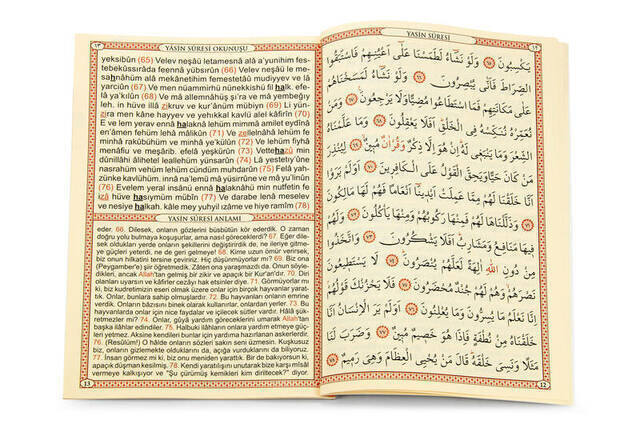 ١٢
YASİN SÛRESİ
يَكْسِبُونَ ﴿٦٥﴾ وَلَوْ نَشَاءُ لَطَمَسْنَا عَلَى أَعْيُنِهِمْ فَاسْتَبَقُوا
الصِّرَاطَ فَأَنَّى يُبْصِرُونَ ﴿٦٦﴾ وَلَوْ نَشَاءُ لَمَسَخْنَاهُمْ
عَلَى مَكَانَتِهِمْ فَمَا اسْتَطَاعُوا مُضِيًّا وَلَا يَرْجِعُونَ ﴿٦٧﴾ وَمَنْ
نُعَمِّرْهُ نُنَكِّسْهُ فِي الْخَلْقِ أَفَلَا يَعْقِلُونَ ﴿٦٨﴾ وَمَا عَلَّمْنَاهُ
الشِّعْرَ وَمَا يَنْبَغِي لَهُ إِنْ هُوَ إِلَّا ذِكْرٌ وَقُرْآنٌ مُبِينٌ ﴿٦٩﴾ لِيُنْذِرَ
مَنْ كَانَ حَيًّا وَيَحِقَّ الْقَوْلُ عَلَى الْكَافِرِينَ ﴿٧٠﴾ أَوَلَمْ يَرَوْا
أَنَّا خَلَقْنَا لَهُمْ مِمَّا عَمِلَتْ أَيْدِينَا أَنْعَامًا فَهُمْ لَهَا مَالِكُونَ
﴿٧١﴾ وَذَلَّلْنَاهَا لَهُمْ فَمِنْهَا رَكُوبُهُمْ وَمِنْهَا يَأْكُلُونَ ﴿٧٢﴾ وَلَهُمْ
فِيهَا مَنَافِعُ وَمَشَارِبُ أَفَلَا يَشْكُرُونَ ﴿٧٣﴾ وَاتَّخَذُوا
مِنْ دُونِ اللَّهِ آلِهَةً لَعَلَّهُمْ يُنْصَرُونَ ﴿٧٤﴾ لَا يَسْتَطِيعُونَ
نَصْرَهُمْ وَهُمْ لَهُمْ جُنْدٌ مُحْضَرُونَ ﴿٧٥﴾ فَلَا يَحْزُنْكَ قَوْلُهُمْ
إِنَّا نَعْلَمُ مَا يُسِرُّونَ وَمَا يُعْلِنُونَ ﴿٧٦﴾ أَوَلَمْ يَرَ الْإِنْسَانُ أَنَّا
خَلَقْنَاهُ مِنْ نُطْفَةٍ فَإِذَا هُوَ خَصِيمٌ مُبِينٌ ﴿٧٧﴾ وَضَرَبَ لَنَا
مَثَلًا وَنَسِيَ خَلْقَهُ قَالَ مَنْ يُحْيِي الْعِظَامَ وَهِيَ رَمِيمٌ ﴿٧٨﴾
12
١٣
YÂSİN SÛRESİ OKUNUŞU
yeksibûn (65) Velev neşâü letamesnâ alâ a'yunihim fes-
tebekûssırâda feennâ yübsırûn (66) Velev neşâü le me-
sahnâhüm alâ mekânetihim femestetâû mudiyyev ve lâ
yarciûn (67) Ve men nüammirhü nünekkishü fil halk. efe-
lâ ya'kılûn (68) Ve mâ allemnâhüş şi'ra ve mâ yembeğıy
leh. in hüve illâ zikruv ve kur'ânüm mübiyn (69) Li yün-
zira men kâne hayyev ve yehıkkal kavlü alel kâfirîn (70)
E ve lem yerav ennâ halaknâ lehüm mimmâ amilet eydînâ
en'âmen fehüm lehâ mâlikûn (71) Ve zellelnâhâ lehüm fe
minhâ rakûbühüm ve minhâ ye'külûn (72) Ve lehüm fiyhâ
menâfiu ve meşârib. efelâ yeşkürûn (73) Vettehazû min
dûnillâhi âlihetel leallehüm yünsarûn (74) Lâ yestetıy'ûne
nasrahüm vehüm lehüm cündüm muhdarûn (75) Felâ yah-
zünke kavlühüm. innâ na'lemü mâ yüsirrûne ve mâ yu'linûn
(76) Evelem yeral insânü ennâ halaknâhü min nutfetin fe
izâ hüve hasıymüm mübîn (77) Ve darabe lenâ meselev
ve nesiye halkah. kâle mey yuhyil ızâme ve hiye ramîm (78)
YASİN SÛRESİ ANLAMI
eder. 66. Dilesek, onların gözlerini büsbütün kör ederdik. O zaman
doğru yolu bulmaya koşuşurlar, ama nasıl göreceklerdi? 67. Eğer dile-
sek oldukları yerde onların şekillerini değiştirirdik de, ne ileriye gitme-
ye güçleri yeterdi, ne de geri gelmeye! 68. Kime uzun ömür verirsek,
biz onun hilkatini tersine çeviririz. Hiç düşünmüyorlar mı? 69. Biz ona
(Peygamber'e) şiir öğretmedik. Zâten ona yaraşmazdı da. Onun söyle-
dikleri, ancak Allah'tan gelmiş bir zikir ve apaçık bir Kur'an'dır. 70. Diri
olanları uyarsın ve kâfirler cezâyı hak etsinler diye. 71. Görmüyorlar mı
ki, biz kudretimizin eseri olmak üzere onlar için birçok hayvanlar yarat-
tık. Onlar, bunlara sahip olmuşlardır. 72. Bu hayvanları onların emrine
verdik. Onların bâzısını binek olarak kullanırlar, onlardan yerler. 73. Bu
hayvanlarda onlar için nice faydalar ve içilecek sütler vardır. Hâlâ şük-
retmezler mi? 74. Onlar, güyâ yardım göreceklerini umarak Allah'tan
başka ilâhlar edindiler. 75. Halbuki ilâhların onlara yardım etmeye güç-
leri yetmez. Aksine kendileri bunlar için yardıma hazırlanan askerlerdir.
76. (Resûlüm!) O hâlde onların sözleri sakın seni üzmesin. Kuşkusuz
biz, onların gizlemekte olduklarını da, açığa vurduklarını da biliyoruz.
77. İnsan görmez mi ki, biz onu meniden yarattık. Bir de bakıyorsun ki,
apaçık düşman kesilmiş. 78. Kendi yaratılışını unutarak bize karşı misâl
vermeye kalkışıyor ve "Şu çürümüş kemikleri kim diriltecek?" diyor.
13